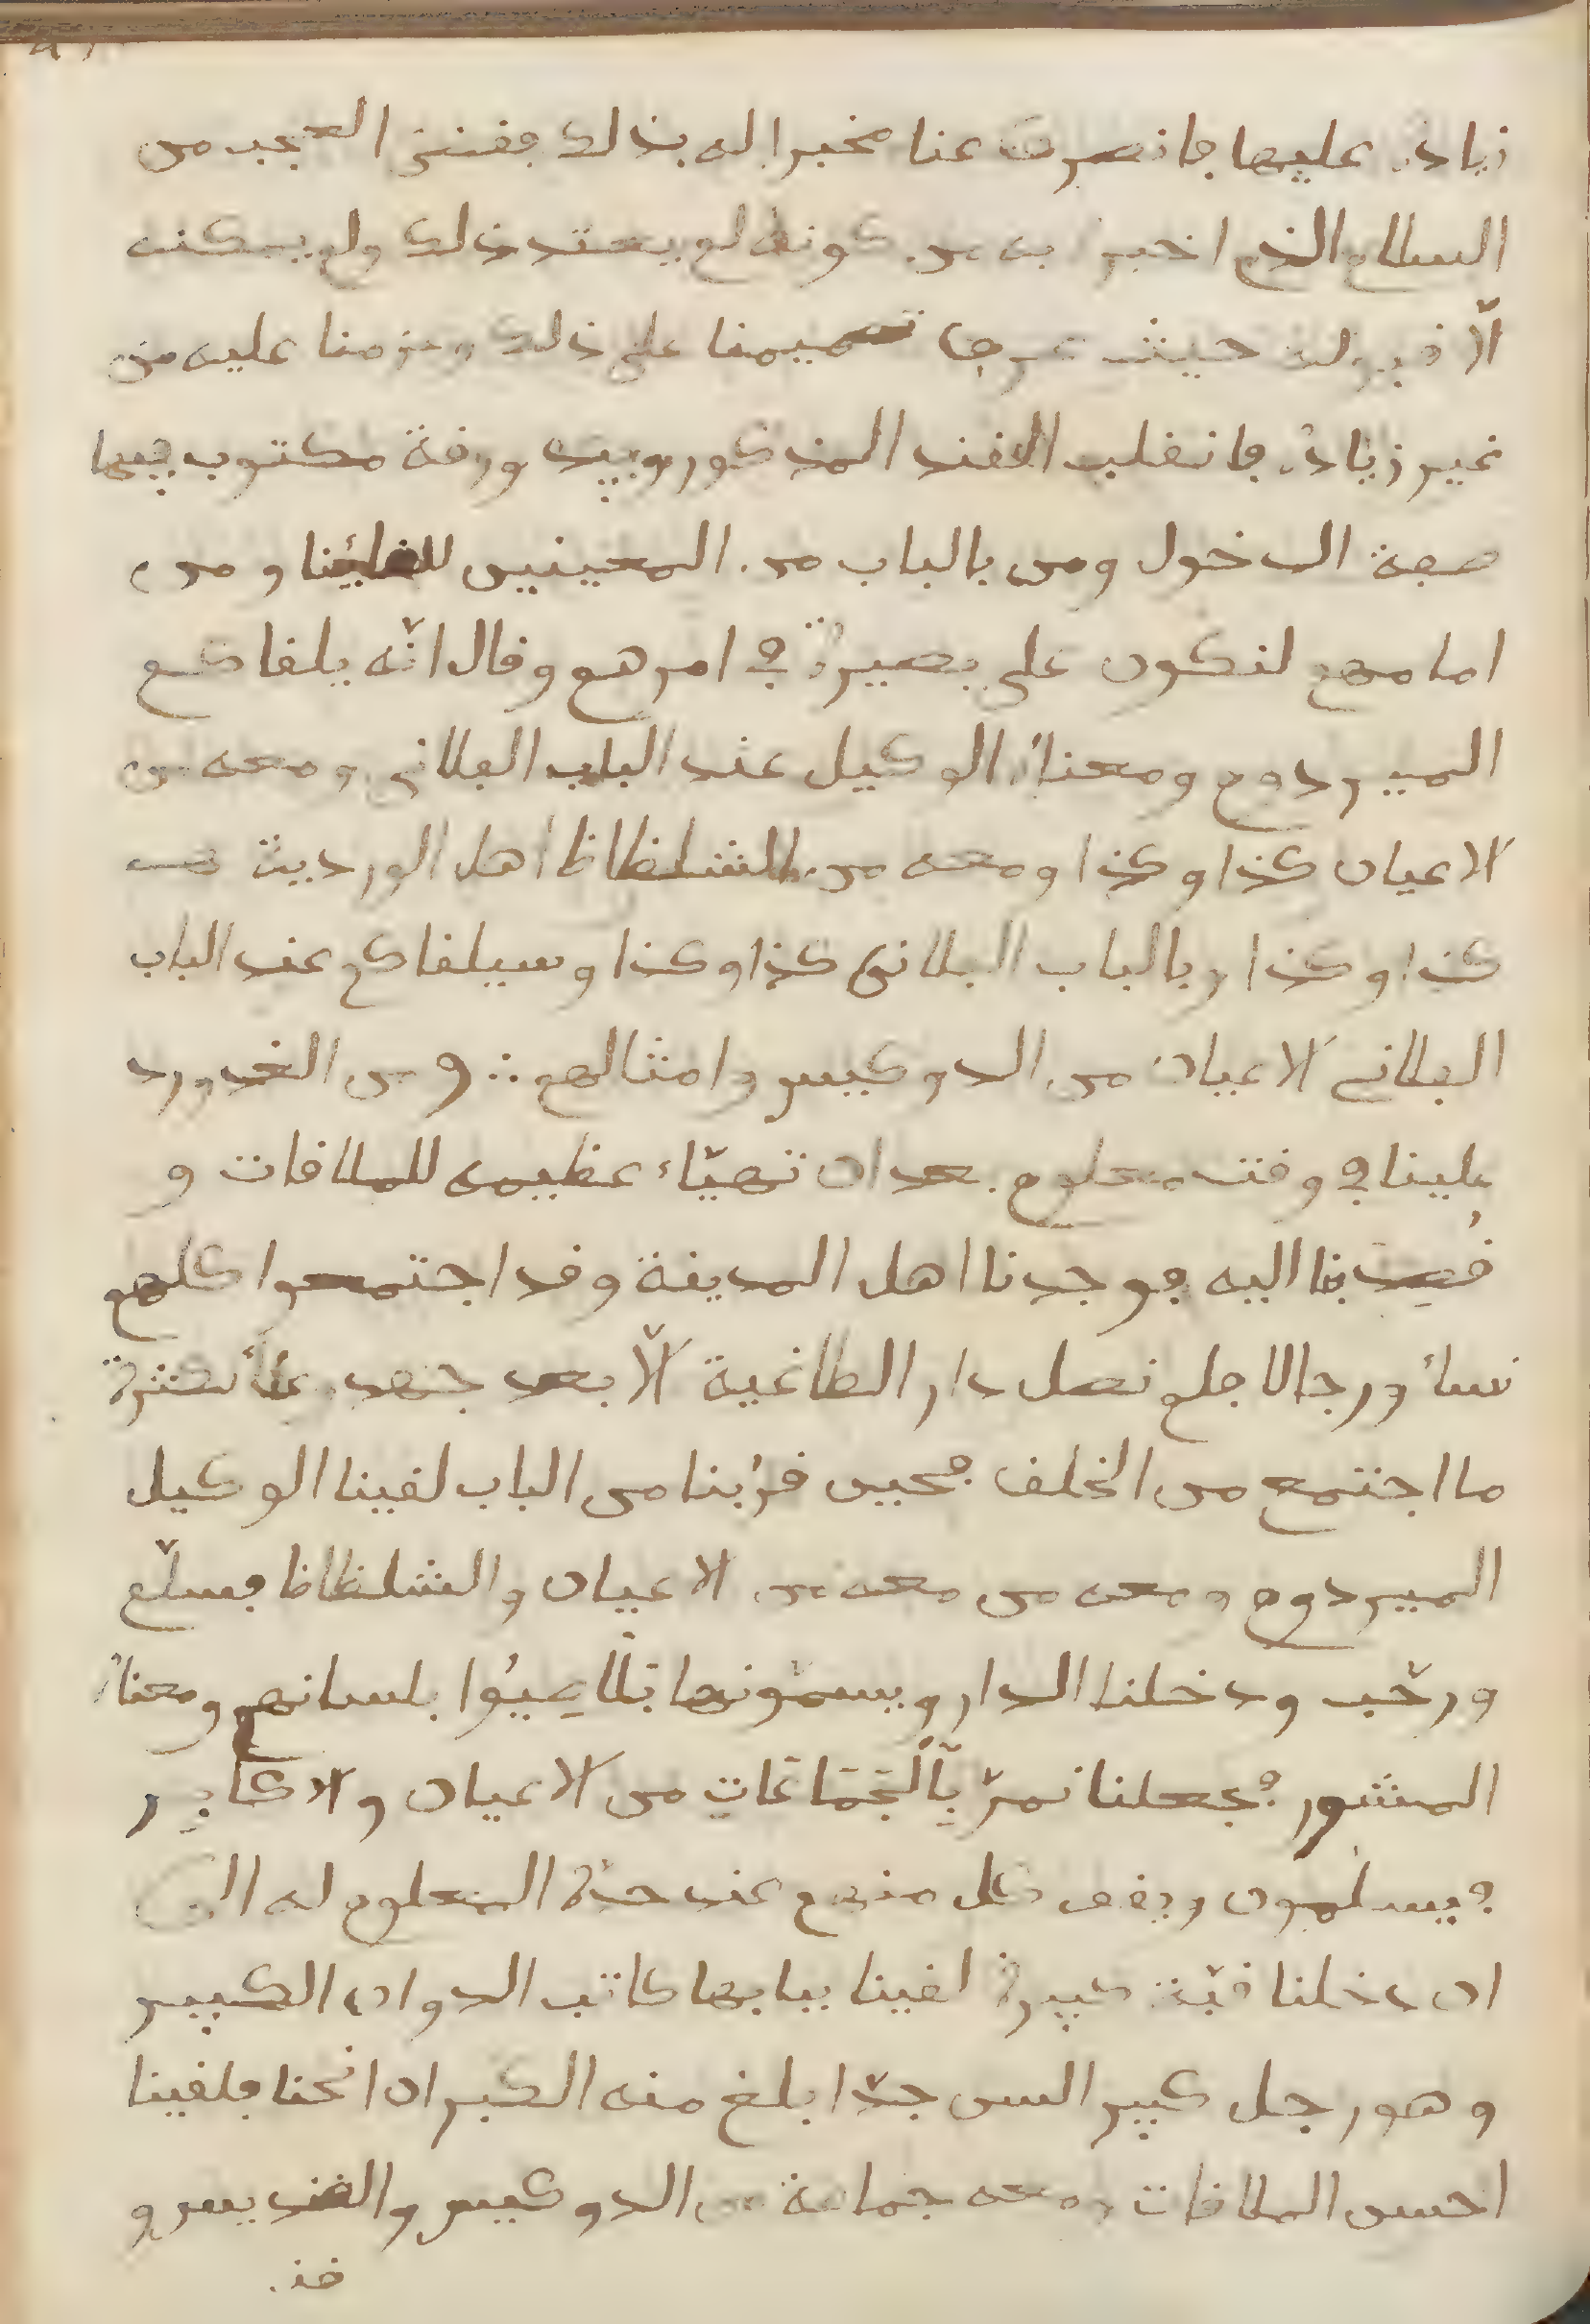 زيادة عليها فانصرف عنا مخبرا له بذلك فقضى العجب من
السلام الذي اخبر به من كونه لم يعتد ذلك ولم يمكنه
الّا قبوله حيث عرف تصميمنا على ذلك وعزمنا عليه من
غير زيادة فانقلب القند المذكور وبيده ورقة مكتوب فيها
صفة الدخول ومن بالباب من المعينين للقائنا ومن
امامهم لنكون على بصيرة في امرهم وقال انّه يلقاكم
الميردوم ومعناه الوكيل عند الباب الفلاني ومعه من
الاعيان كذا وكذا ومعه من الشلظاظ اهل الورديت
كذا وكذا وبالباب الفلاني كذا وكذا وسيلقاكم عند الباب
الفلاني الاعيان من الدوكيس وامثالهم ∴ ومن الغد ورد
علينا في وقت معلوم بعد ان تهيّاء عظيمه للملاقات و
قصدنا اليه فوجدنا اهل المدينة وقد اجتمعوا كلهم
نساء ورجالا فلم نصل دار الطاغية الّا بعد جهد لكثرة
ما اجتمع من الخلق فحين قربنا من الباب لقينا الوكيل
الميردوم ومعه من معه من الاعيان والشلظاظ فسلّم
ورحّب ودخلنا الدار ويسمّونها بلاصيوا بلسانهم ومعناه
المشور فجعلنا نمرّ بالجماعات من الاعيان والاكابر
فيسلمون ويقف كل منهم عند حدّه المعلوم له الى
ان دخلنا قبّة كبيرة لقينا ببابها كاتب الدوان الكبير
وهو رجل كبير السن جدّا بلغ منه الكبر ان انحنا فلقينا
احسن الملاقات ومعه جماعة من الدوكيس والقنديس و
قد